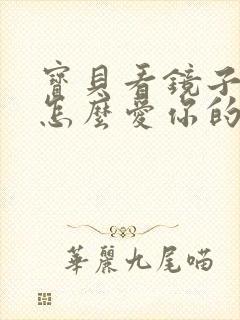 寶貝看鏡子
怎麼愛你的
華麗九尾喵